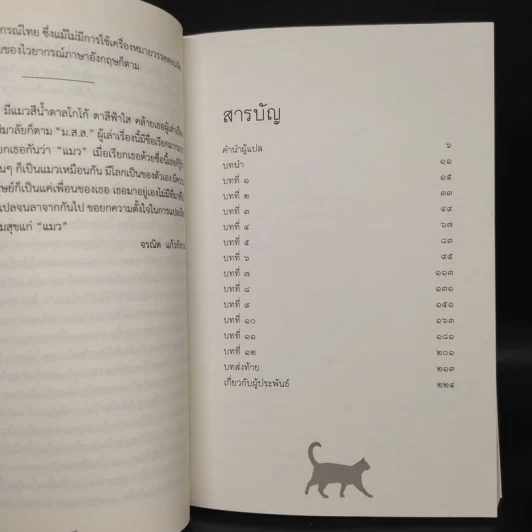 กรณ์ไทย ซึ่งแม้ไม่มีการใช้เครื่องหมายวรรคตอน
ของไวยากรณ์ภาษาอังกฤษก็ตาม
มีแมวสีน้ำตาลโกโก้ ตาสีฟ้าใส คล้ายเธอผู้เล่าเรื่อง
มาลัยก็ตาม "ม.ส.ล." ผู้เล่าเรื่องนี้มีชื่อเรียก
ยกเธอกันว่า "แมว" เมื่อเรียกเธอด้วยชื่อนี้
นๆ ก็เป็นแมวเหมือนกัน มีโลกเป็นของตัวเอง
ษย์ก็เป็นแค่เพื่อนของเธอ เธอมาอยู่เอง
แปลจนลาจากกันไป ขอยกความตั้งใจในการแปล
มสุขแก่ "แมว"
จรณิต
สารบัญ
คำนำผู้แปล ๖
บทนำ ๑๑
บทที่ ๑ ๑๕
บทที่ ๒ ๓๓
บทที่ ๓ ๔๙
บทที่ ๔ ๖๗
บทที่ ๕ ๘๓
บทที่ ๖ ๙๕
บทที่ ๗ ๑๑๓
บทที่ ๘ ๑๓๑
บทที่ ๙ ๑๕๑
บทที่ ๑๐ ๑๖๓
บทที่ ๑๑ ๑๘๑
บทที่ ๑๒ ๒๐๑
บทส่งท้าย ๒๑๓
เกี่ยวกับผู้ประพันธ์ ๒๒๔